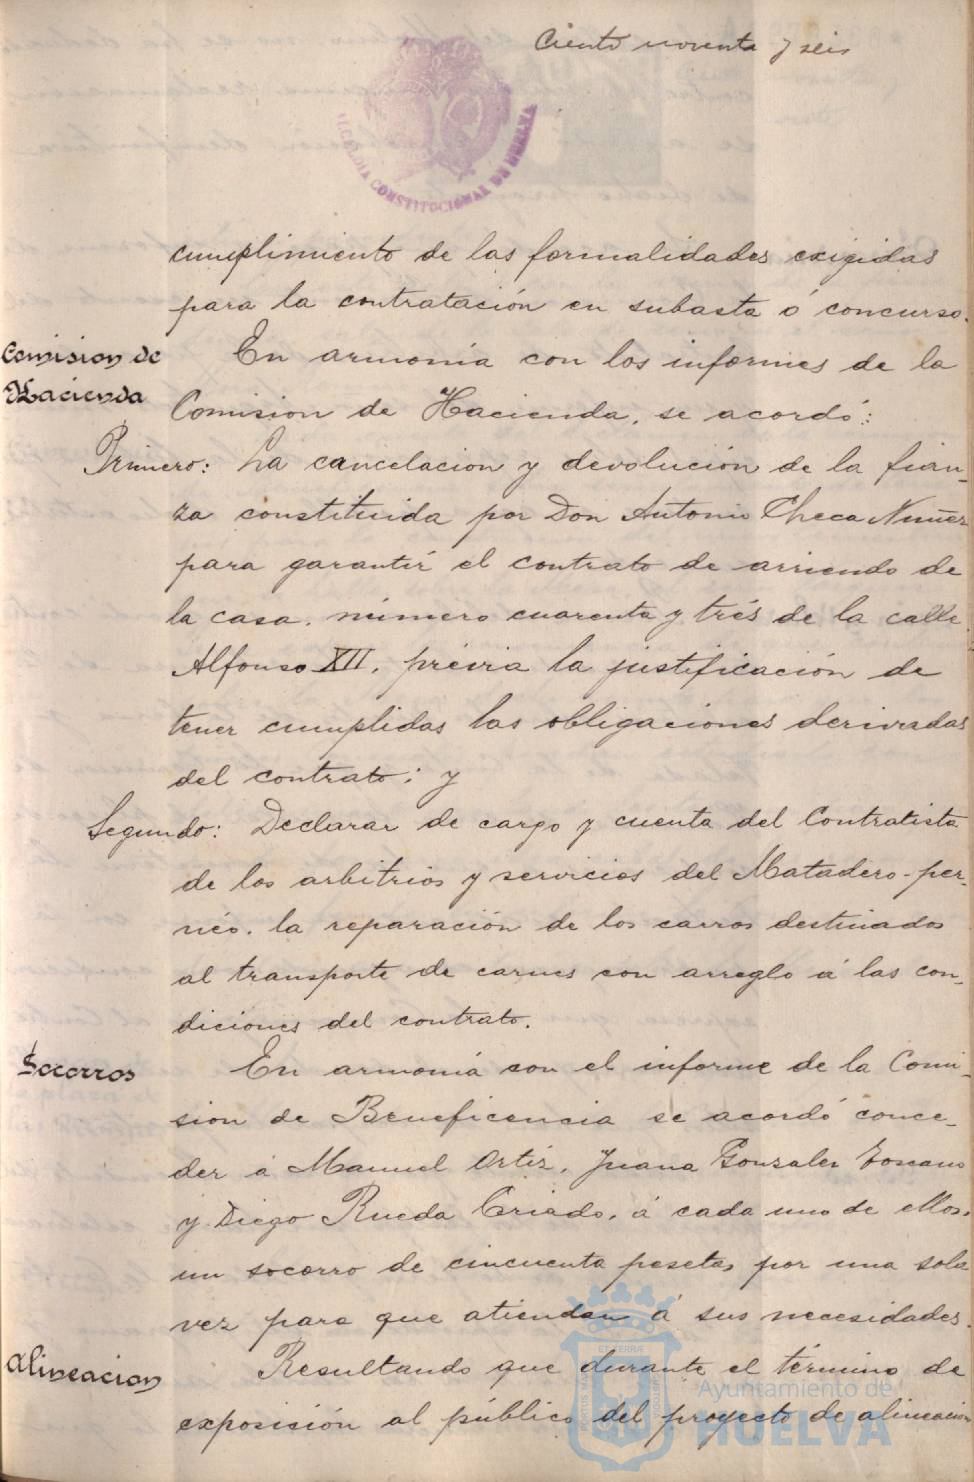 Ciento noventa y seis
ALCALDIA CONSTITUCIONAL DE HUELVA
cumplimiento de las formalidades exigidas
para la contratación en subasta ó concurso.
Comision de
Hacienda
En armonía con los informes de la
Comision de Hacienda, se acordó:
Primero: La cancelacion y devolución de la fian-
za constituida por Don Antonio Checa Nuñez
para garantir el contrato de arriendo de
la casa, número cuarenta y trés de la calle
Alfonso XII, prévia la justificación de
tener cumplidas las obligaciones derivadas
del contrato; y
Segundo: Declarar de cargo y cuenta del Contratista
de los arbitrios y servicios del Matadero-per-
néo, la reparación de los carros destinados
al transporte de carnes con arreglo á las con-
diciones del contrato.
Socorros
En armonía con el informe de la Comi-
sion de Beneficencia se acordó conce-
der á Manuel Ortiz, Juana Gonzalez Toscano
y Diego Rueda Criado, á cada uno de ellos,
un socorro de cincuenta pesetas por una sola
vez para que atiendan á sus necesidades.
Alineacion
Resultando que durante el término de
exposición al público del proyecto de alineacion
Ayuntamiento de
HUELVA